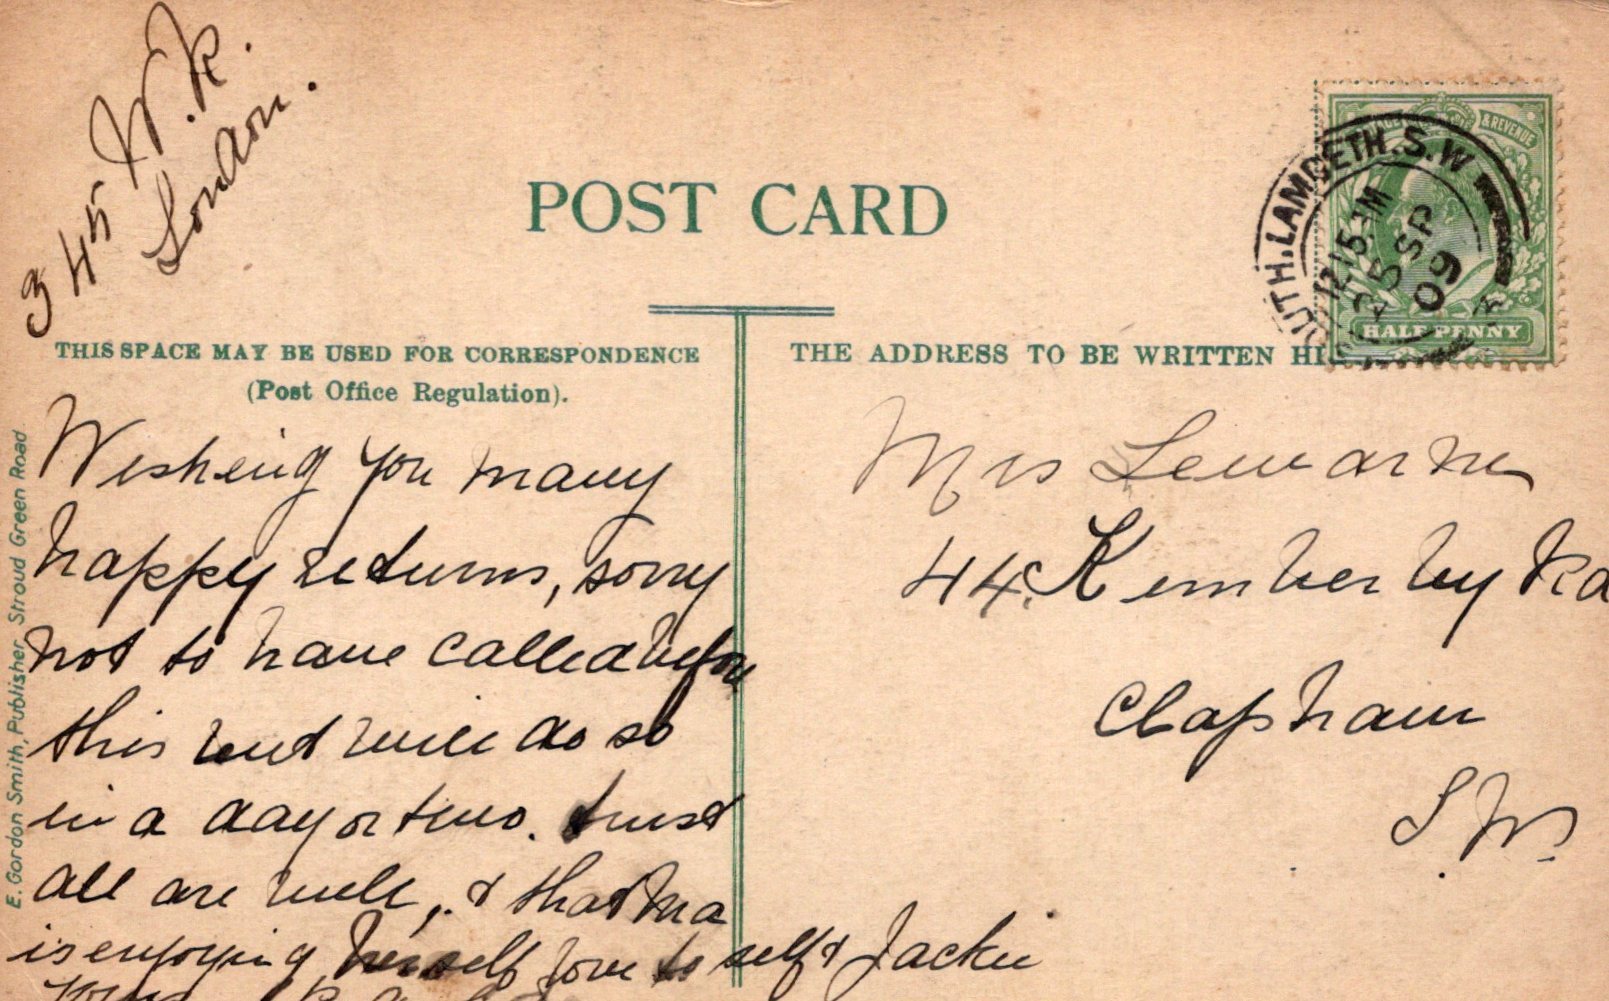 345 W.R.
London.
POST CARD
THIS SPACE MAY BE USED FOR CORRESPONDENCE
(Post Office Regulation).
THE ADDRESS TO BE WRITTEN
& REVENUE
HALF PENNY
UTH.LAMBETH.S.W
12.15 PM
25 SP
09
Wishing you many
happy returns, sorry
not to have called before
this but will do so
in a day or two. trust
all are well, & that Ma
is enjoying herself love to self & Jackie
Mrs Lewarne
44. Kimberley Rd
Clapham
S.W.
E. Gordon Smith, Publisher, Stroud Green Road